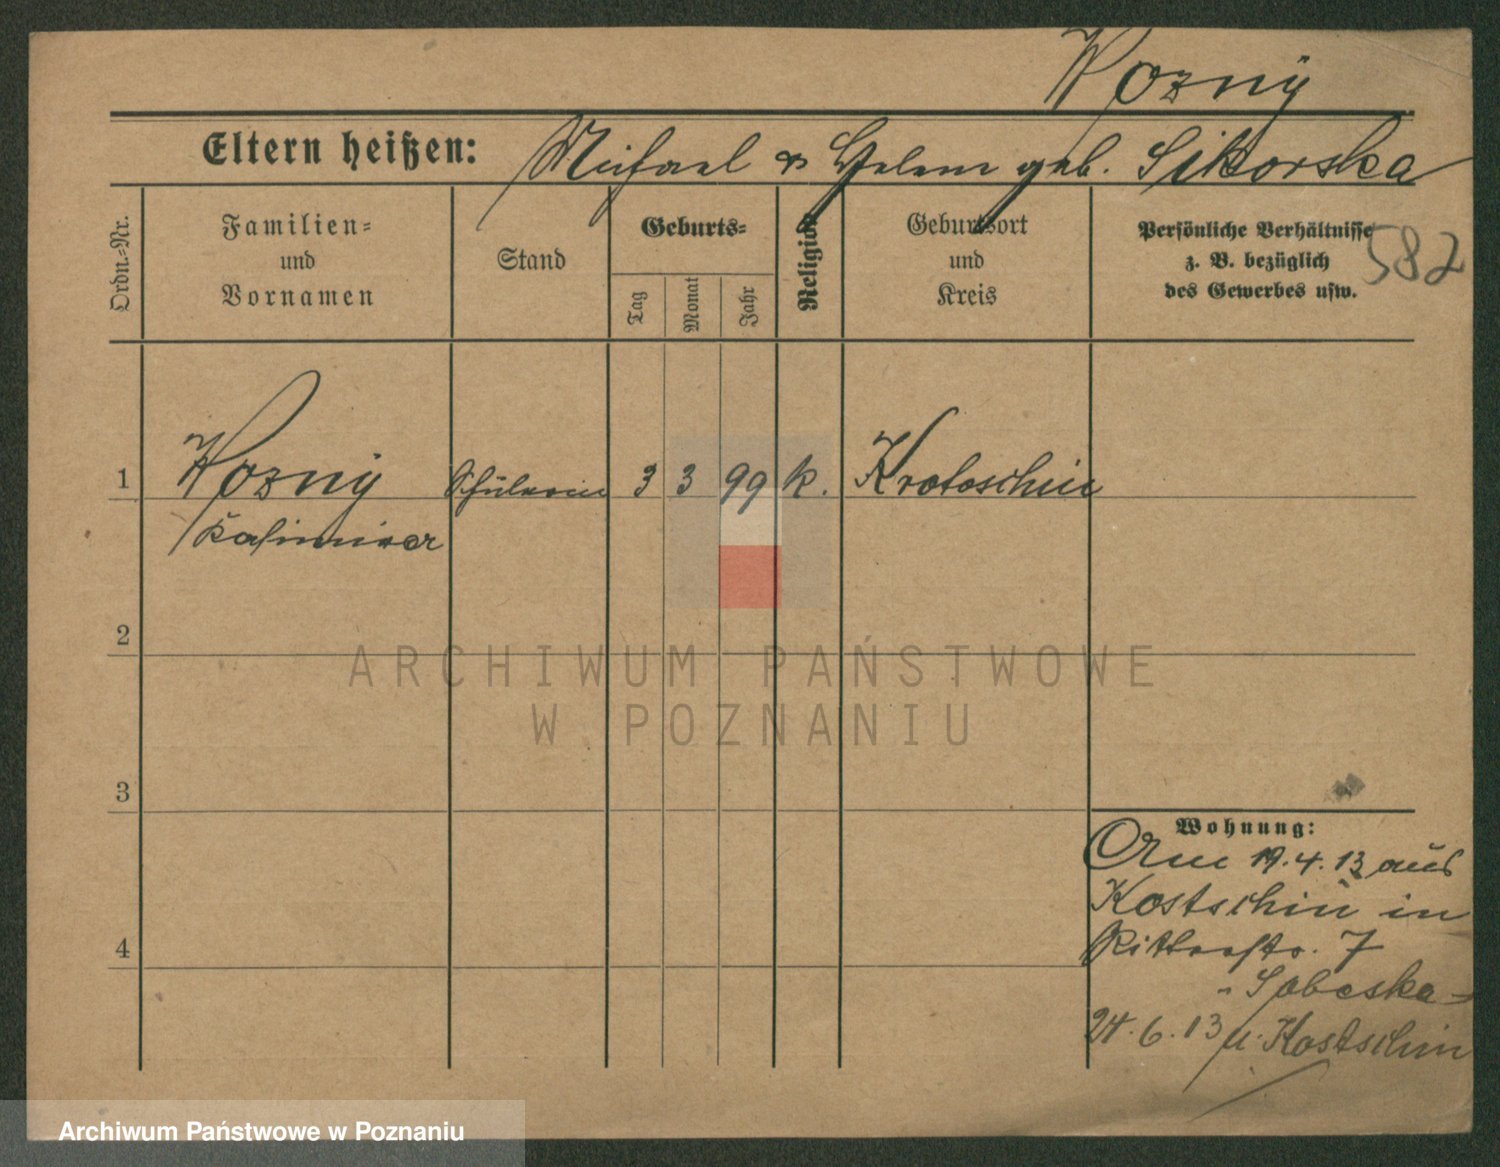 Wozny
Eltern heißen: Michael & Helene geb. Sikorska
Ordn.-Nr.
Familien-
und
Vornamen
Stand
Geburts-
Tag
Monat
Jahr
Religion
Geburtsort
und
Kreis
Persönliche Verhältnisse
z. B. bezüglich
des Gewerbes usw.
582
1 Wozny Schülerin 3 3 99 k. Krotoschin
Kasimira
2
3
4
Wohnung:
Am 19.4.13 aus
Kostschin in
Ritterstr. 7
24.6.13 n. Kostschin
ARCHIWUM PAŃSTWOWE
W POZNANIU
Archiwum Państwowe w Poznaniu